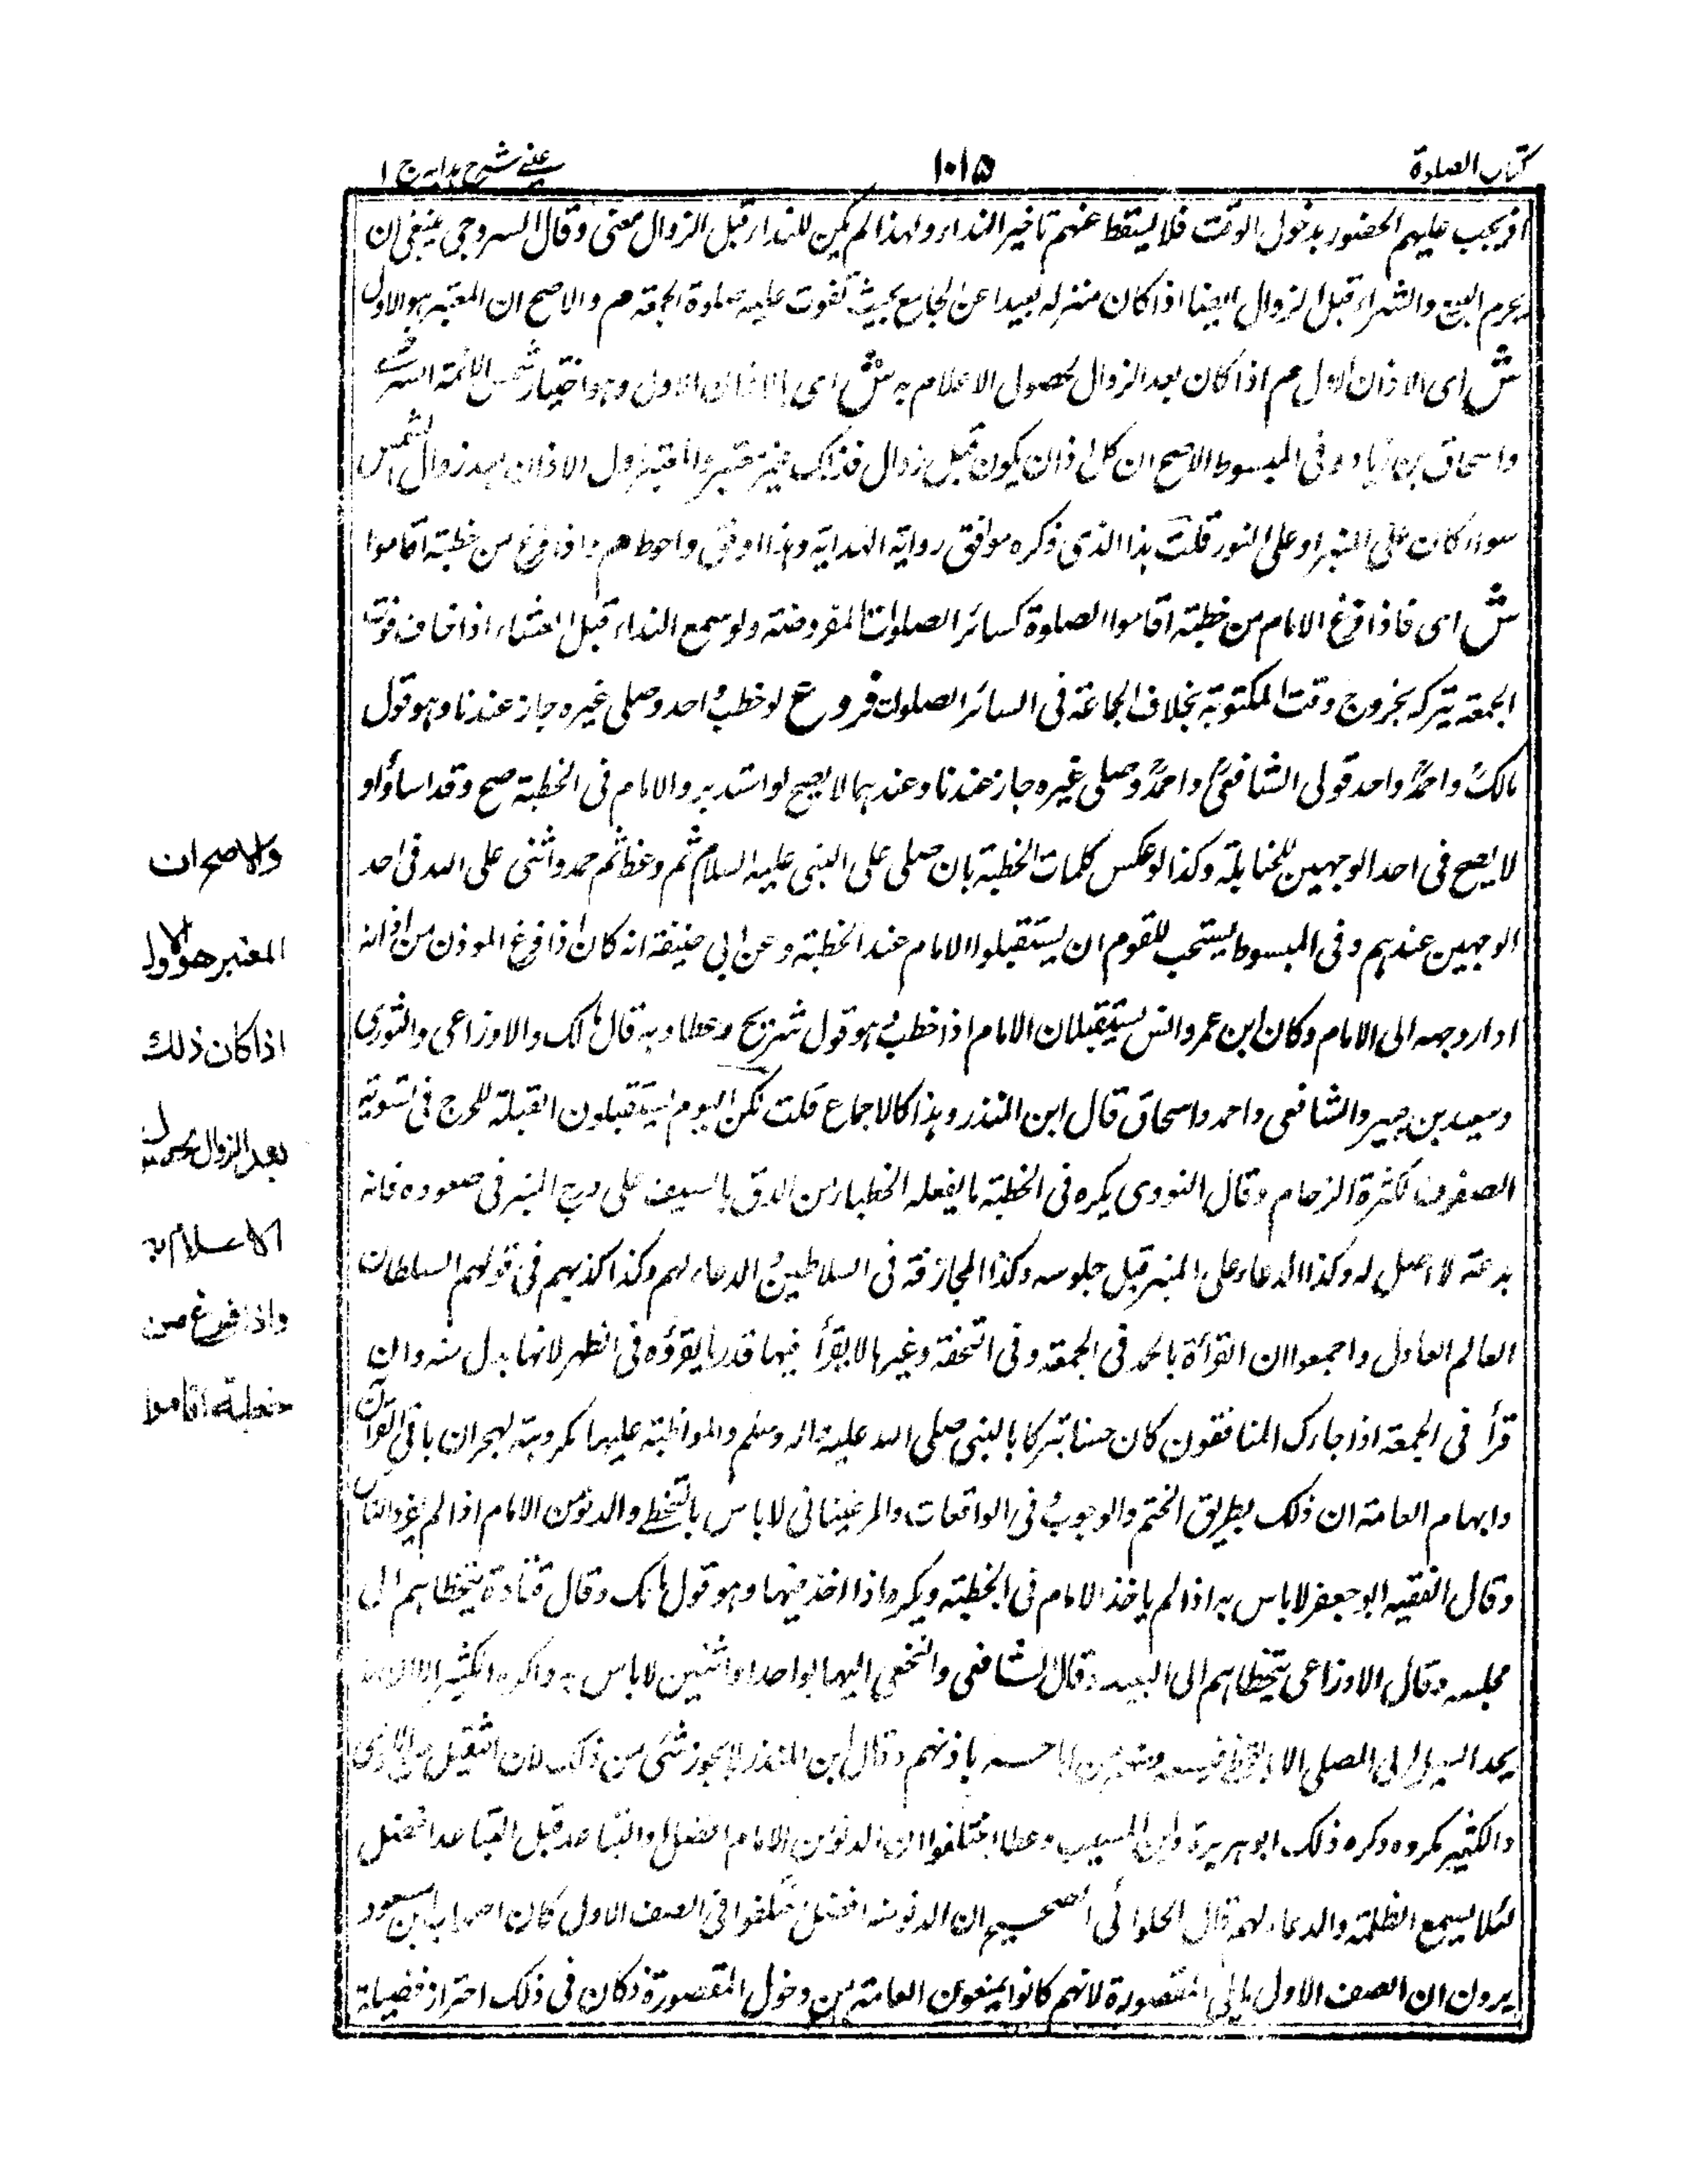 كتاب الصلوة
١٠١٥
عيني شرح هدايه ج ١
اذ يجب عليهم الحضور بدخول الوقت فلا يسقط عنهم تاخير النداء ولهذا لم يكن للنداء قبل الزوال معنى وقال السروجي ينبغي ان
يحرم البيع والشراء قبل الزوال ايضا اذا كان منزله بعيدا عن الجامع بحيث تفوت عليه صلوة الجمعة هم والاصح ان المعتبر هو الاول
ش اى الاذان الاول هم اذا كان بعد الزوال لحصول الاعلام به ش اى بالاذان الاول وهو اختيار شمس الائمة السرخسي
واسحاق بن زياد وفى المبسوط الاصح ان كل اذان يكون قبل زوال فذلك غير معتبر والمعتبر اول الاذان بعد زوال الشمس
سواء كان على المنبر او على الزوراء قلت هذا الذى ذكره موافق رواية الهداية وهذا اوفق واحوط هم واذا فرغ من خطبته اقاموا
ش اى فاذا فرغ الامام من خطبته اقاموا الصلوة كسائر الصلوات المفروضة ولو سمع النداء قبل العشاء اذا خاف فوت
الجمعة يتركه بخروج وقت المكتوبة بخلاف الجماعة فى السائر الصلوات فروع لو خطب احد وصلى غيره جاز عندنا وهو قول
مالك واحمد واحد قولى الشافعى واحمد وصلى غيره جاز عندنا وعندهما لا يصح لو استدبروا الامام فى الخطبة صح وقد اساؤا و
لا يصح فى احد الوجهين للحنابلة وكذا لو عكس كلمات الخطبة بان صلى على النبى عليه السلام ثم وعظ ثم حمد واثنى على الله فى احد
الوجهين عندهم وفى المبسوط يستحب للقوم ان يستقبلوا الامام عند الخطبة وعن ابى حنيفة انه كان اذا فرغ الموذن من اذانه
ادار وجهه الى الامام وكان ابن عمر وانس يستقبلان الامام اذا خطب هو قول شريح وعطاء وبه قال مالك والاوزاعى والثورى
وسعيد بن جبير والشافعى واحمد واسحاق قال ابن المنذر وهذا كالاجماع قلت لكن اليوم يستقبلون القبلة للحرج فى تسوية
الصفوف لكثرة الزحام وقال النووى يكره فى الخطبة ما يفعله الخطباء من الدق بالسيف على درج المنبر فى صعوده فانه
بدعة لا اصل له وكذا الدعاء على المنبر قبل جلوسه وكذا المجازفة فى السلاطين الدعاء لهم وكذا كذبهم فى قولهم السلطان
العالم العادل واجمعوا ان القرأة بالحمد فى الجمعة وفى التحفة وغيرها لا يقرأ فيها قدر ما يقرؤه فى الظهر لانها بدل منه وان
قرأ فى الجمعة اذا جاءك المنافقون كان حسنا تبركا بالنبى صلى الله عليه واله وسلم والمواظبة عليها مكروهة لهجران باقى القرآن
وابهام العامة ان ذلك بطريق الختم والوجوب فى الواقعات والمرغينانى لا باس بالتخطى والدنو من الامام اذا لم يؤذ الناس
وقال الفقيه ابو جعفر لا باس به اذا لم ياخذ الامام فى الخطبة ويكره اذا اخذ فيها وهو قول مالك وقال قتادة يتخطاهم الى
مجلسه وقال الاوزاعى يتخطاهم الى السعة وقال الشافعى والنخعى اليها بواحد او اثنين لا باس به واكره الكثير الا ان لا
يجد السبيل الى المصلى الا بالتخطى باذنهم وقال ابن المنذر لا يجوز شئ من ذلك لان القليل من الاذى
والكثير مكروه وكره ذلك ابو هريرة وابن المسيب وعطاء اختلفوا ان الدنو من الامام افضل او التباعد قيل التباعد افضل
لئلا يسمع الظلمة والدعاء لهم قال الحلوائى الصحيح ان الدنو منه افضل اختلفوا فى الصف الاول كان اصحاب ابن مسعود
يرون ان الصف الاول ما يلى المقصورة لانهم كانوا يمنعون العامة من دخول المقصورة فكان فى ذلك احتراز فضيلة
والاصح ان
المعتبر هو الاول
اذا كان ذلك
بعد الزوال لحصول
الاعلام به
واذا فرغ من
خطبته اقاموا